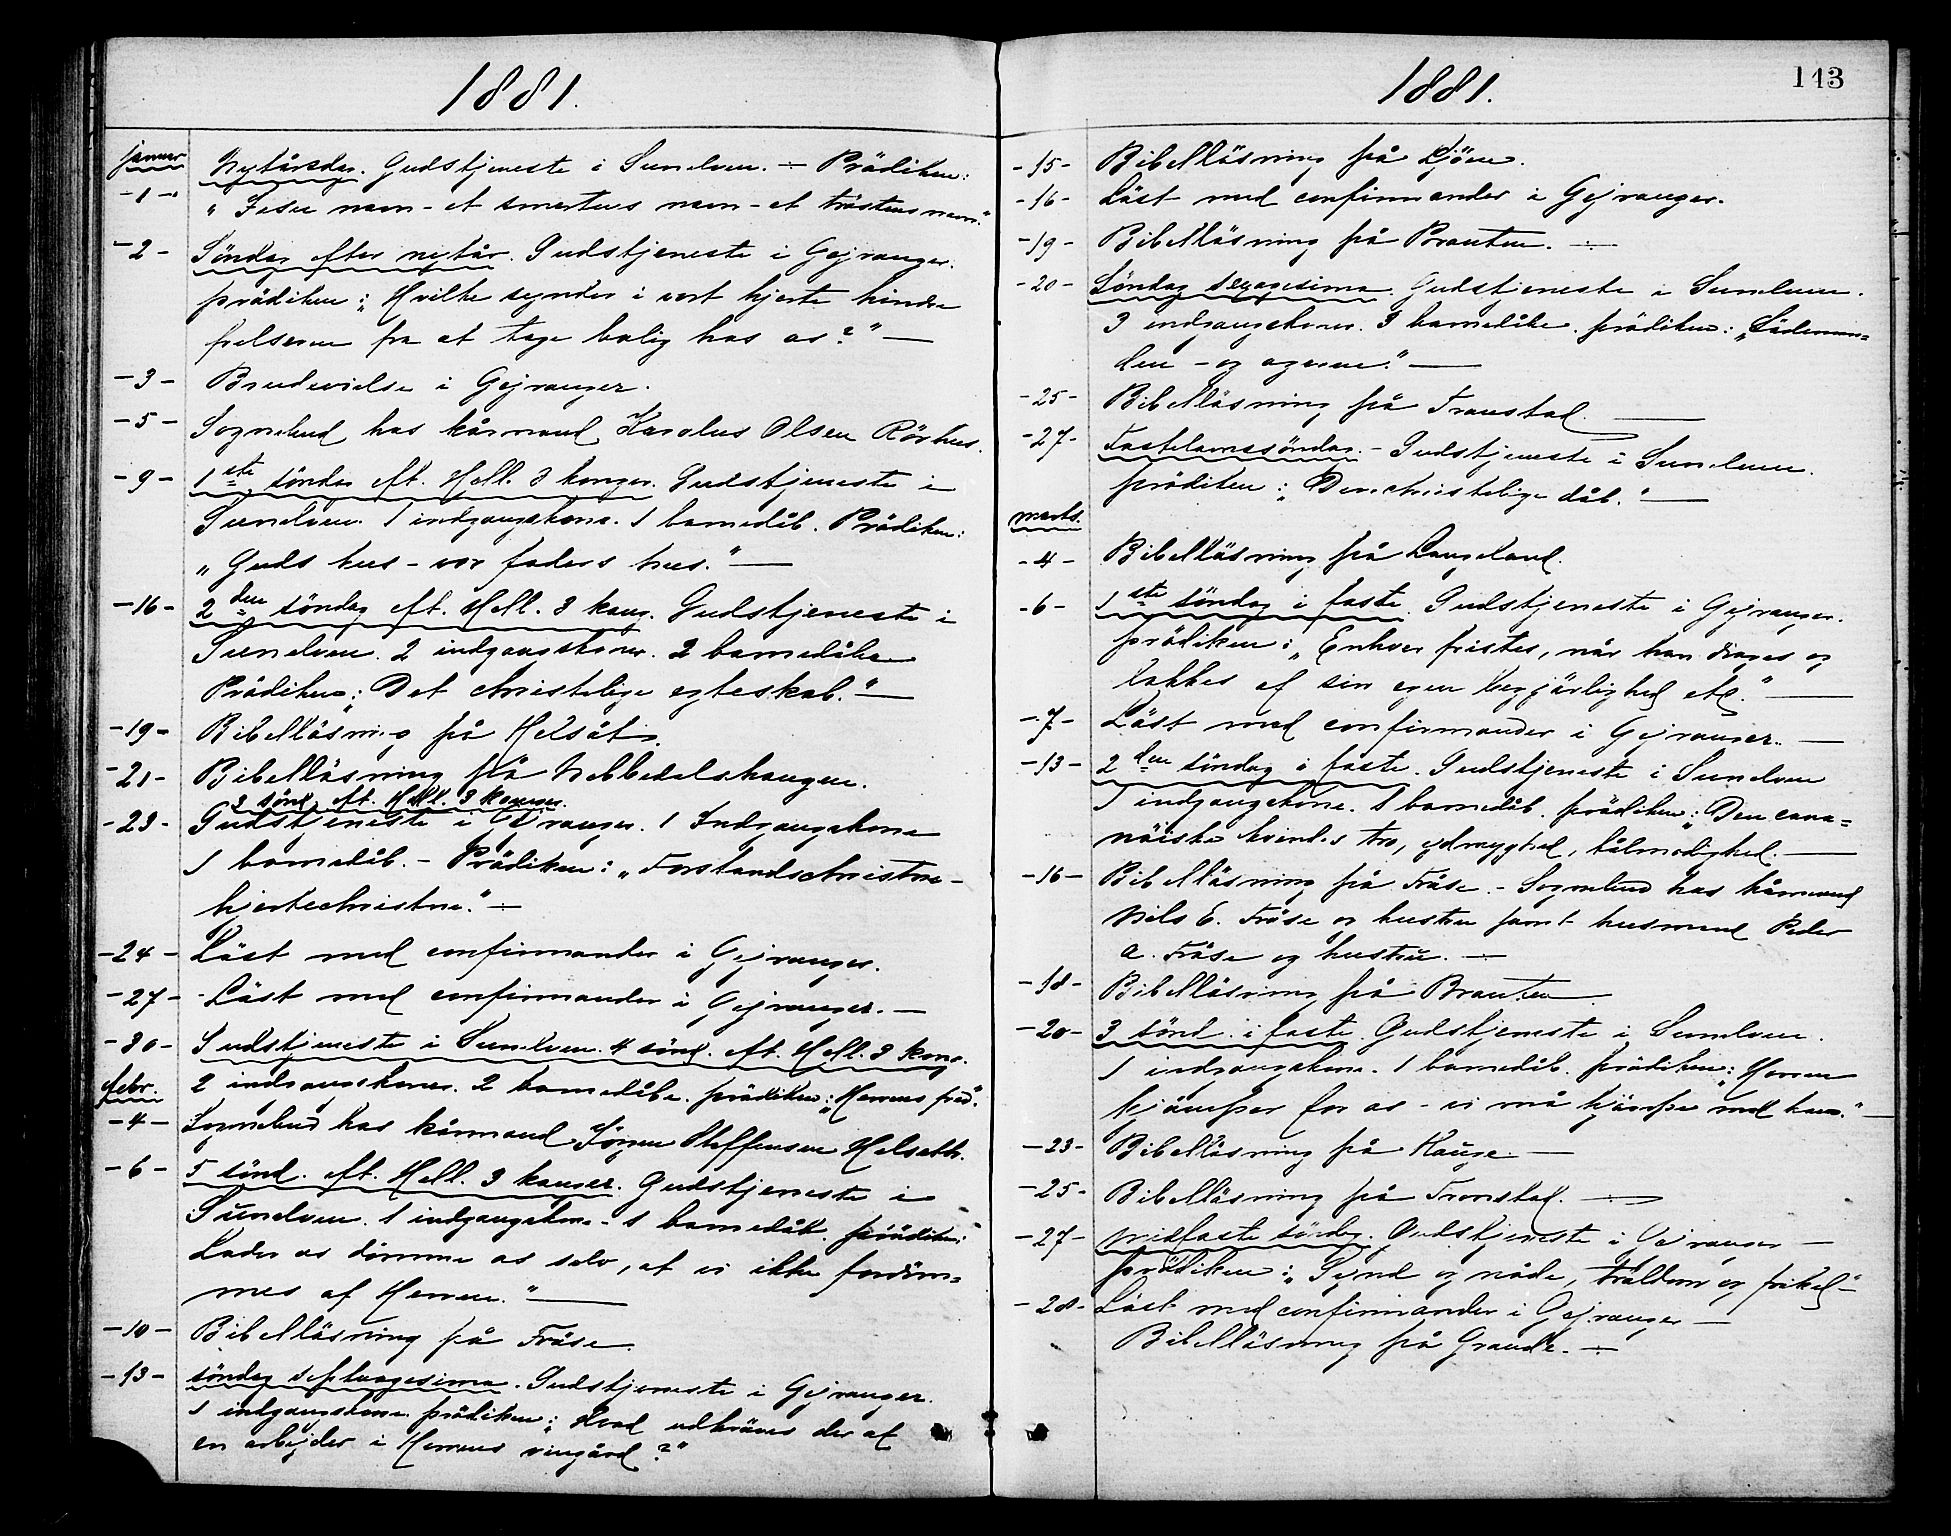 1881.
januar
-1- Nytårsdag. Gudstjeneste i Sunelven. — Prädiken:
"Jesu navn - et smertens navn - et tröstens navn."
-2- Söndag efter nytår. Gudstjeneste i Gejranger.
prädiken: "Hvilke synder i vort hjerte hindre
frelseren fra at tage bolig hos os?" —
-3- Brudevielse i Gejranger.
-5- Sognebud hos kårmand Karolus Olsen Rörhus.
-9- 1ste söndag eft. Hell. 3 konger. Gudstjeneste i
Sunelven. 1 indgangskone. 1 barnedåb. Prädiken:
"Guds hus - vor faders hus." —
-16- 2den söndag eft. Hell. 3 kong. Gudstjeneste i
Sunelven. 2 indgangskoner. 2 barnedåbe
Prädiken: "Det christelige egteskab." —
-19- Bibelläsning på Helsät.
-21- Bibelläsning på Nebbedalshaugen.
3 sönd. eft. Hell. 3 konger.
-23- Gudstjeneste i Gejranger. 1 Indgangskone
1 barnedåb. - Prädiken: "Forstandschristne -
hjertechristne." —
-24- Läst med confirmander i Gejranger.
-27- Läst med confirmander i Gejranger. —
-30- Gudstjeneste i Sunelven. 4 sönd. eft. Hell. 3 kong.
2 indgangskoner. 2 barnedåbe. prädiken: "Herrens fred".
febr.
-4- Sognebud hos kårmand Jörgen Steffensen Helsäth.
-6- 5 sönd. eft. Hell. 3 konger. Gudstjeneste i
Sunelven. 1 indgangskone - 1 barnedåb. prädiken:
Lader os dömme os selv, at vi ikke fordöm-
mes af Herren." —
-10- Bibelläsning på Fråse.
-13- söndag septuagesima. Gudstjeneste i Gejranger.
1 indgangskone. prädiken: "Hvad udkräves der af
en arbejder i Herrens vingård?"
1881.
113
-15- Bibelläsning på Ljöen.
-16- Läst med confirmander i Gejranger.
-19- Bibelläsning på Brauten. —
-20- Söndag sexagesima. Gudstjeneste i Sunelven.
3 indgangskoner. 3 barnedåbe. prädiken: "Sädeman-
den - og ageren." —
-25- Bibelläsning på Tronstad. —
-27- Fastelavnssöndag. - Gudstjeneste i Sunelven.
prädiken: "Den christelige dåb." —
marts.
-4- Bibelläsning på Langeland.
-6- 1ste söndag i faste. Gudstjeneste i Gejranger.
prädiken: "Enhver fristes, når han drages og
lokkes af sin egen begjärlighed etc." —
-7- Läst med confirmander i Gejranger. —
-13- 2den söndag i faste. Gudstjeneste i Sunelven
1 indgangskone. 1 barnedåb. prädiken: "Den cana-
näiske kvindes tro, ydmyghed, tålmodighed. —
-16- Bibelläsning på Fråse. - Sognebud hos kårmand
Nils E. Fråse og hustru samt husmand Peder
A. Fråse og hustru. —
-18- Bibelläsning på Brauten
-20- 3 sönd. i faste. Gudstjeneste i Sunelven.
1 indgangskone. 1 barnedåb. prädiken: "Herren
kjämper for os - vi må kjämpe med ham." —
-23- Bibelläsning på Hauge. —
-25- Bibelläsning på Tronstad. —
-27- midfaste söndag. Gudstjeneste i Gejranger —
prädiken: "Synd og nåde, träldom og frihed" —
-28- Läst med confirmander i Gejranger —
Bibelläsning på Grande. —